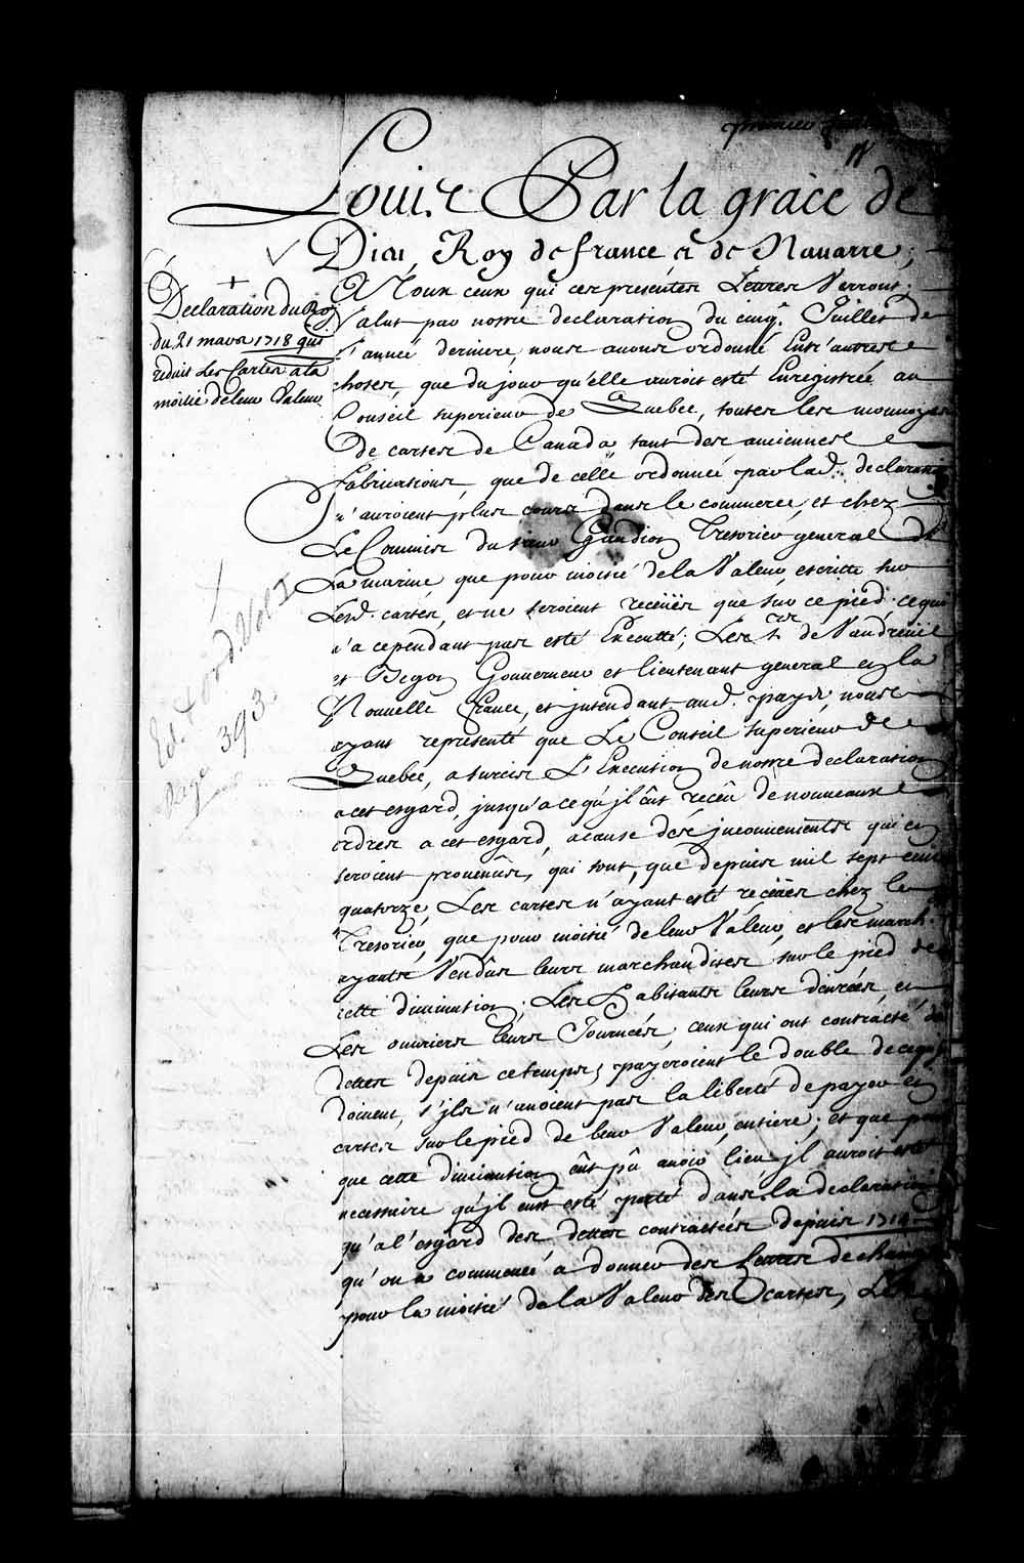 premier
Louis Par la grace de
Dieu, Roy de france et de Nauarre;
A Tous ceux qui ces presentes Lettres Verront;
Salut par nostre declaration du cinq.e Juillet de
l'année derniere, nous auons ordonné Entr'autres
choses, que du jour qu'elle auroit esté Enregistrée au
Conseil superieur de Quebec, toutes les monnoyes
De cartes de Canada, tant des anciennes
fabrications, que de celle ordonnée par lad. declaration
n'auroient plus cours dans le commerce, et chez
Le Commis du sieur Gaudion Tresorier general de
La marine, que pour moitié de la Valeur, escritte sur
Lesd. cartes, et ne seroient receües que sur ce pied. ce qui
n'a cependant pas esté Executté; Les Srs. de Vaudreuil
et Begon Gouuerneur et lieutenant general en la
Nouuelle france, et jntendant aud. pays, nous
ayant representé que Le Conseil superieur de
Quebec, a surcis L'Execution de nostre declaration
a cet esgard, jusqu'a ce qu'jl eût receû de nouueaux
ordres a cet esgard, acause des jnconuenients qui en
seroient prouenus, qui sont, que depuis mil sept cent
quatorze, Les cartes n'ayant esté receües chez le
Tresorier, que pour moitié de leur Valeur, et les march.ds
ayants Vendûs leurs marchandises sur le pied de
cette diminution, Les habitants leurs denrées, et
Les ouuriers leurs Journées, ceux qui ont contracté des
dettes depuis ce temps, payeroient le double de ce qu'jls
doiuent, s'jls n'auoient pas la liberté de payer en
cartes sur le pied de leur Valeur entiere; et que pour
que cette diminution eût pû auoir lieu, jl auroit esté
necessaire qu'jl eust esté porté dans la declaration
qu'a l'esgard des dettes contractées depuis 1714
qu'on a commencé a donner des Lettres de change
pour la moitié de la Valeur des cartes, Les
Declaration du Roy
du 21 mars 1718 qui
reduit Les Cartes a la
moitié de leur Valeur
Ed. & ord. Vol I
Page 393.